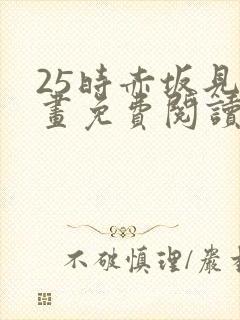 25時赤坂見
畫免費閱讀
不破慎理/嚴